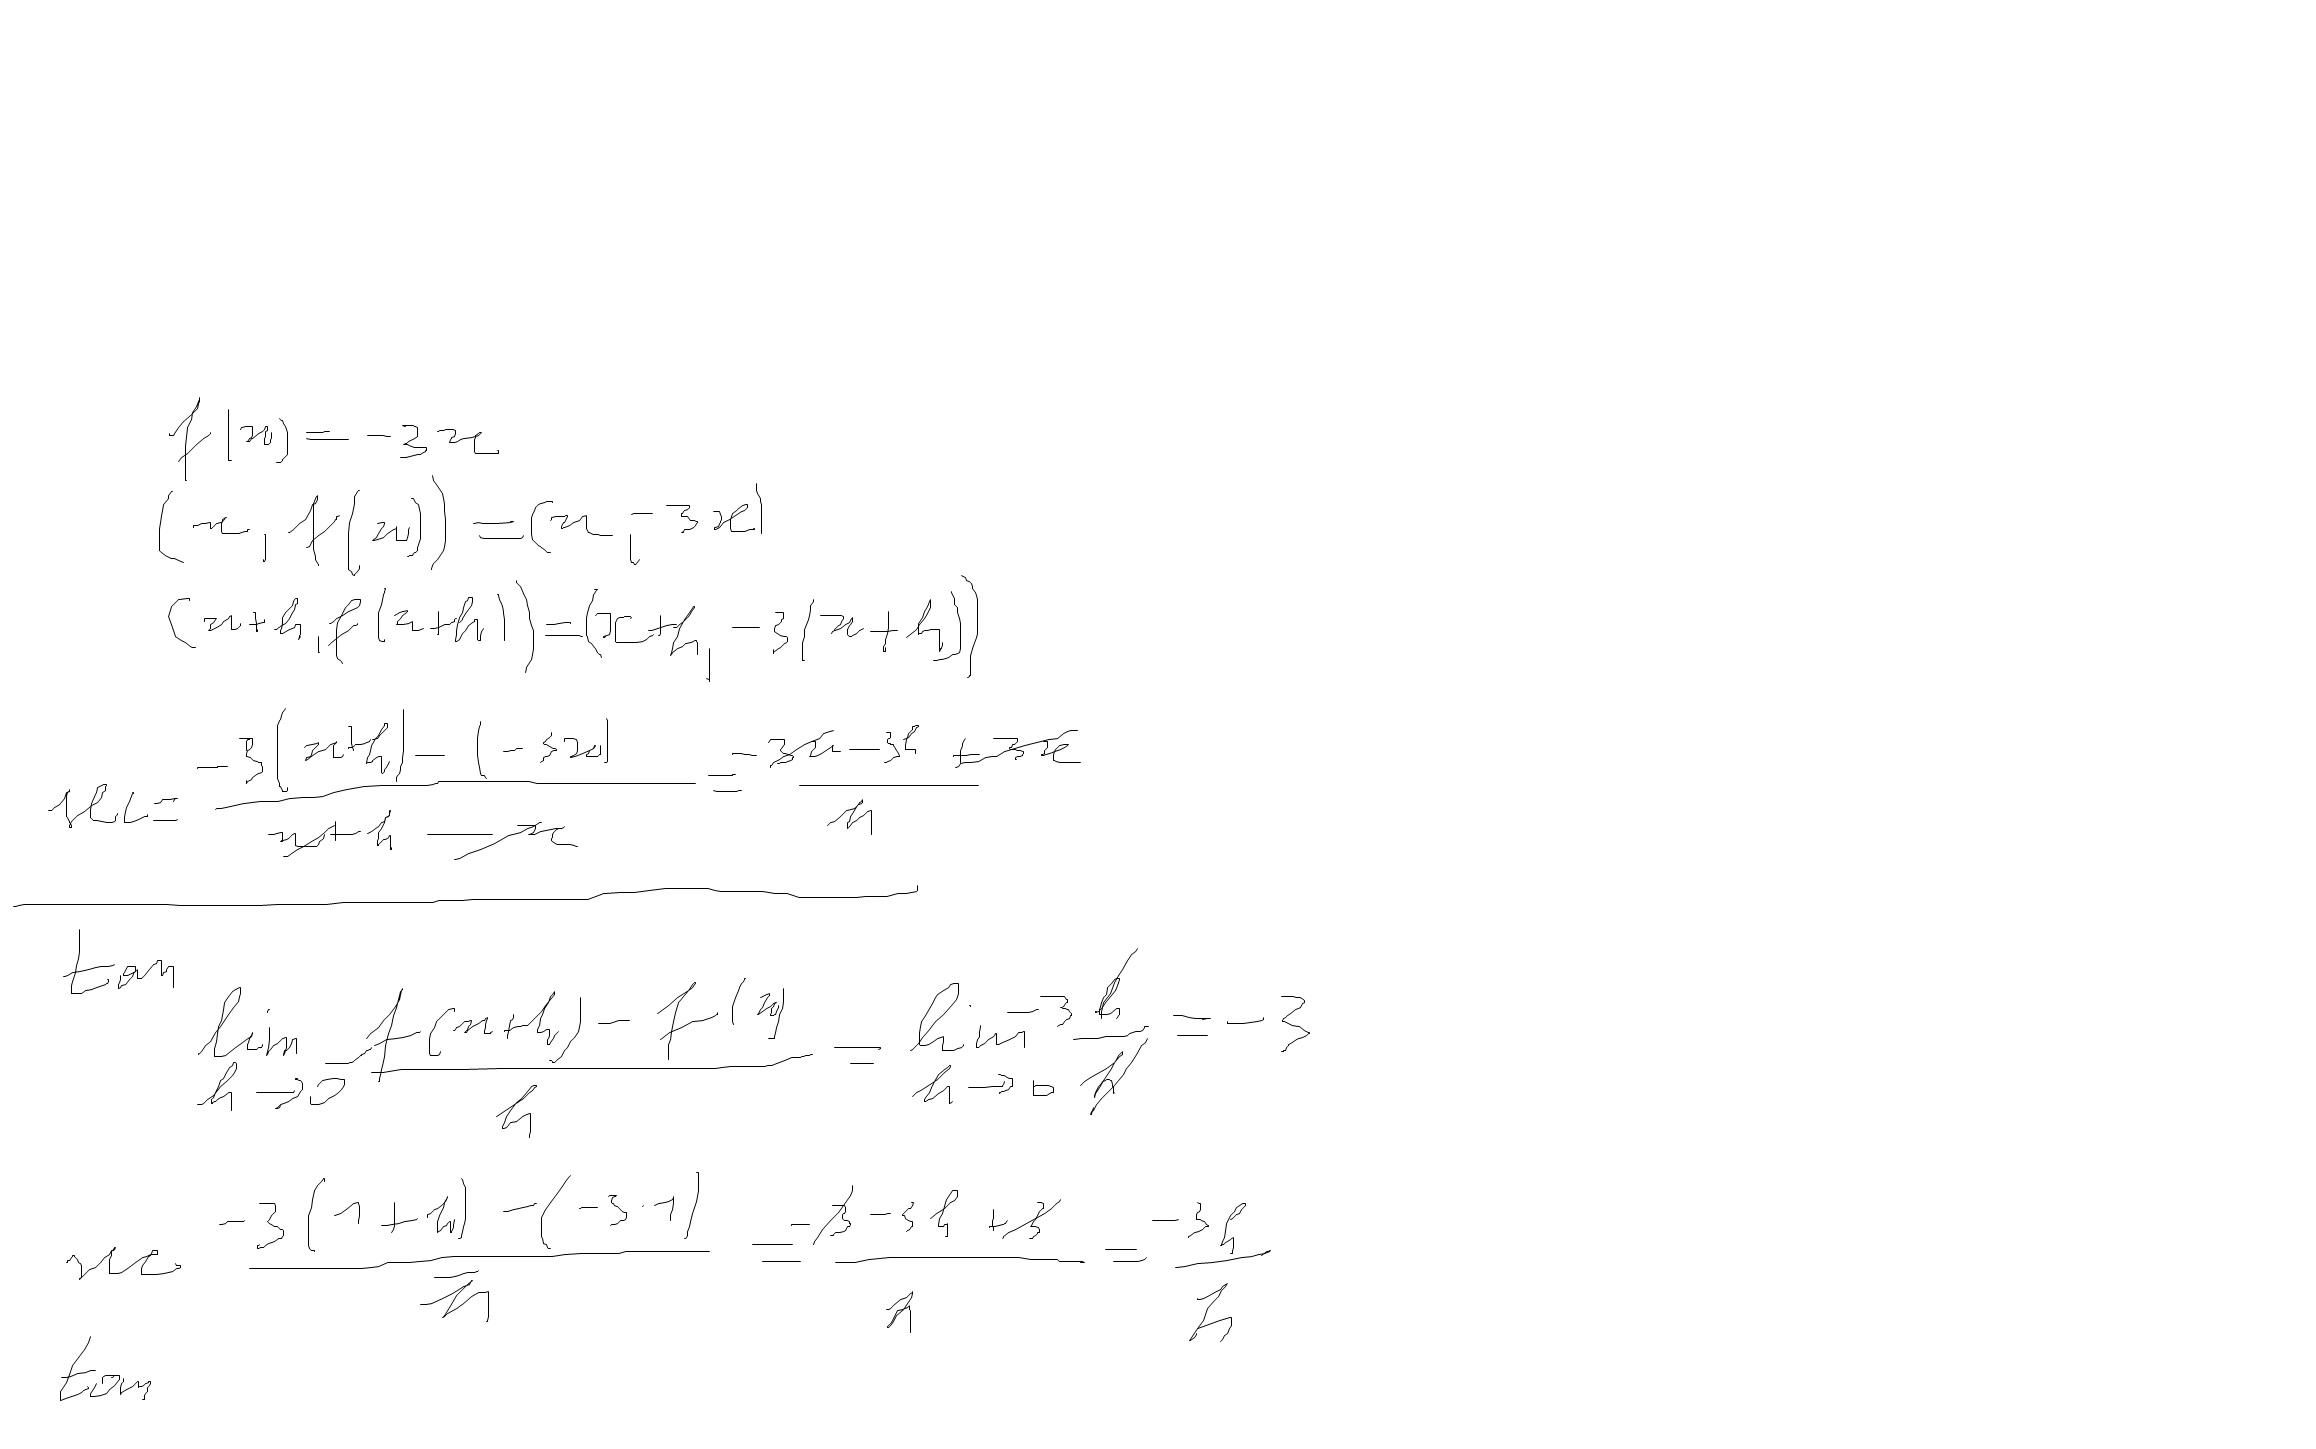 f(x) = -3x
(x, f(x)) = (x, -3x)
(x+h, f(x+h)) = (x+h, -3(x+h))
sec = \frac{-3(x+h) - (-3x)}{x+h - x} = \frac{-3x - 3h + 3x}{h}
tan
lim_{h→0} \frac{f(x+h) - f(x)}{h} = lim_{h→0} -3\frac{h}{h} = -3
sec \frac{-3(1+h) - (-3·1)}{h} = \frac{-3 - 3h + 3}{h} = \frac{-3h}{h}
tan